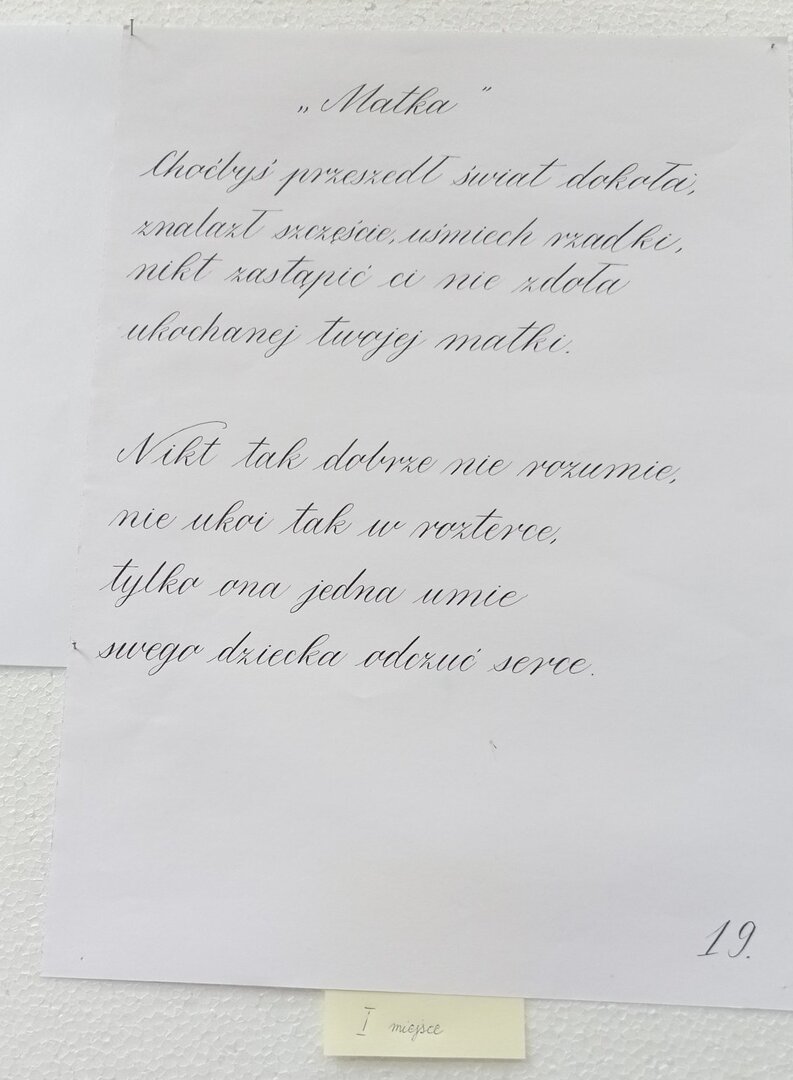 „Matka”
Choćbyś przeszedł świat dokoła,
znalazł szczęście, uśmiech rzadki,
nikt zastąpić ci nie zdoła
ukochanej twojej matki.
Nikt tak dobrze nie rozumie,
nie ukoi tak w rozterce,
tylko ona jedna umie
swego dziecka odczuć serce.
19.
I miejsce